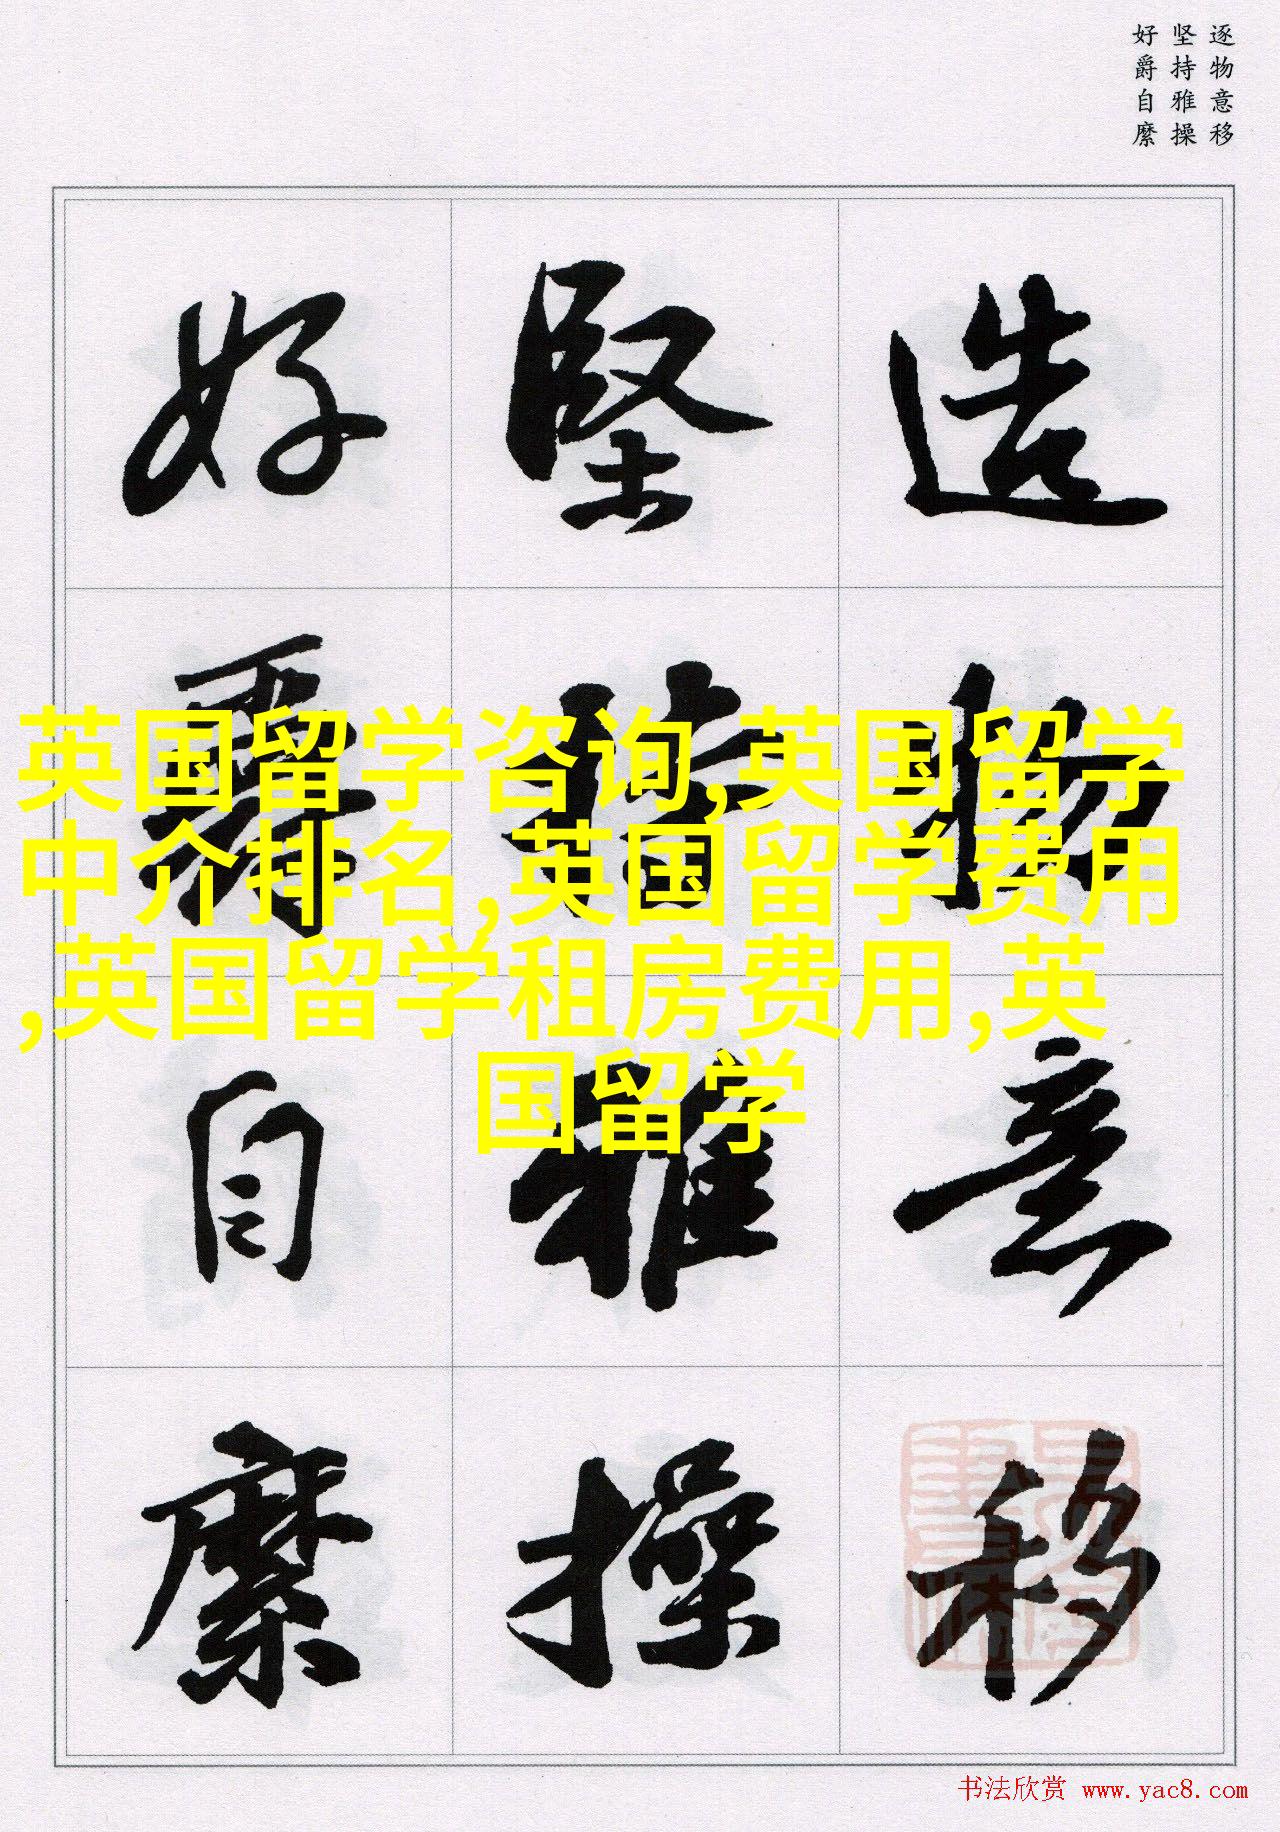 逐物意移
坚持雅操
好爵自縻
造物意移
堅持雅操
好爵自縻
英国留学咨询,英国留学
中介排名,英国留学费用
,英国留学租房费用,英
国留学
书法欣赏 www.yac8.com